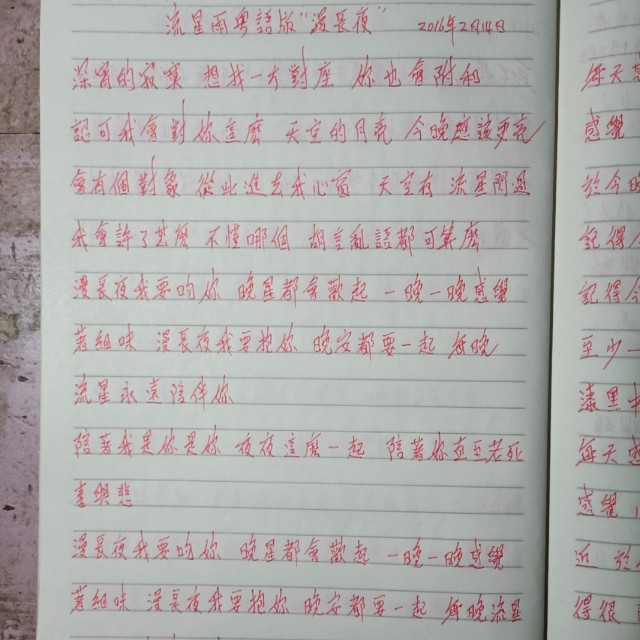 流星雨粵語版"漫長夜" 2016年2月14日
深宵的寂寞 想找一方對座 你也會附和 每天
認可我會對你這麼 天空的月亮 今晚應該更亮 感覺
會有個對象 從此進去我心窩 天空有 流星閃過 於今
我會許了甚麼 不懂哪個 胡言亂語都可算麼 記得
漫長夜我要吻你 晚星都會歡起 一晚一晚感覺 記得今
著細味 漫長夜我要抱你 晚安都要一起 每晚 至少一
流星永遠陪伴你 漆黑中
陪著我是你是你 夜夜這麼一起 陪著你直至老死 每天感
喜與悲 感覺
漫長夜我要吻你 晚星都會歡起 一晚一晚感覺 近 於
著細味 漫長夜我要抱你 晚安都要一起 每晚流星 得很